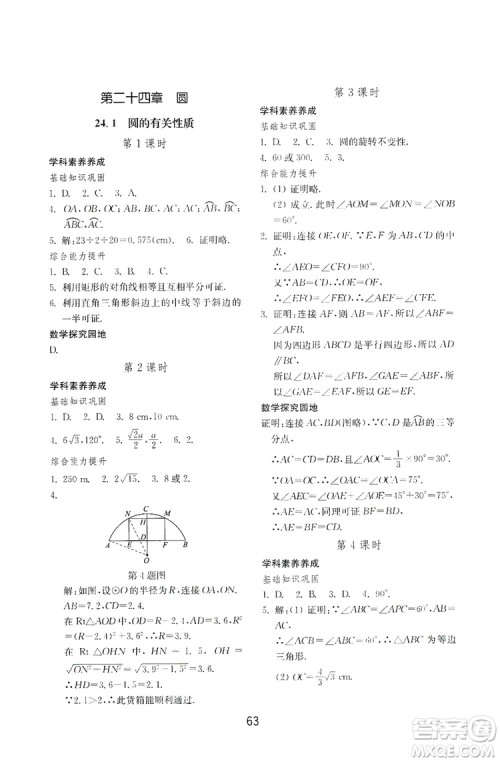 第二十四章 圆
24.1 圆的有关性质
第 1 课时
学科素养养成
基础知识巩固
1. D. 2. C. 3. A.
4. OA, OB, OC; AB, BC, AC; AC; \overset{\frown}{AB}, \overset{\frown}{BC};
\overset{\frown}{ABC}, \overset{\frown}{AC}.
5. 解:23÷2÷20=0.575(cm) 6. 证明略.
综合能力提升
1. B. 2. D. 3. C. 4. B.
5. 利用矩形的对角线相等且平分可证.
6. 利用直角三角形斜边上的中线等于斜边的
一半可证.
数学探究园地
D.
第 2 课时
学科素养养成
基础知识巩固
1. D. 2. D. 3. 8 cm, 10 cm.
4. 6√3, 120°. 5. √2a/2, a/2. 6. 2.
综合能力提升
1. 250 m. 2. 2√15. 3. C.
4.
N H
A E D F B
O
第 4 题图
解:如图,设⊙O 的半径为 R,连接 OA、ON.
AB=7.2, CD=2.4.
在 Rt△AOD 中,(R−2.4)²+3.6²=R².
∴ R=3.9.
在 Rt △ONH 中, HN = 1.5, OH =
√ON²−HN²=√3.9²−1.5²=3.6.
∴ DH=3.6−1.5=2.1.
∵ 2.1>2, ∴ 此货箱能顺利通过.
第 3 课时
学科素养养成
基础知识巩固
1. D. 2. C. 3. 圆的旋转不变性.
4. 60 或 300. 5. 证明略.
综合能力提升
1. (1) 证明略.
(2) 成立. 此时∠AOM=∠MON=∠NOB
=60°.
2. 证明:连接 OA、OB. ∵ E、F 为 AB、CD 的中
点,
∴ ∠AEO=∠CFO=90°.
又∵ ∠AEF=∠CFE,
∴ ∠OEF=∠OFE. ∴ OE=OF.
3. 证明:连接 AF, 则 AB=AF. 所以∠ABF=
∠AFB.
因为四边形 ABCD 是平行四边形,所以 AD
∥BC.
所以∠DAF=∠AFB, ∠GAE=∠ABF.
所以∠GAE=∠EAF. 所以\overset{\frown}{GE}=\overset{\frown}{EF}.
数学探究园地
证明:连接 AC、BD(图略). ∵ C、D 是\overset{\frown}{AB}的三等
分点,
∴ AC=CD=DB, ∠AOC=1/3×90°=30°.
∵ OA=OC, ∴ ∠OAC=∠OCA=75°.
又∵ ∠AEC=∠OAE+∠AOE=45°+30°=75°,
∴ AE=AC. 同理 BF=BD. ∴ AE=BF=
CD.
第 4 课时
学科素养养成
基础知识巩固
1. D. 2. B. 3. D. 4. 90°.
5. 解:(1) 证明: ∵ ∠ABC=∠APC=60°,
∠BAC=∠CPB=60°, ∴ △ABC 为等边
三角形.
(2) OC=4/3√3 cm.
63